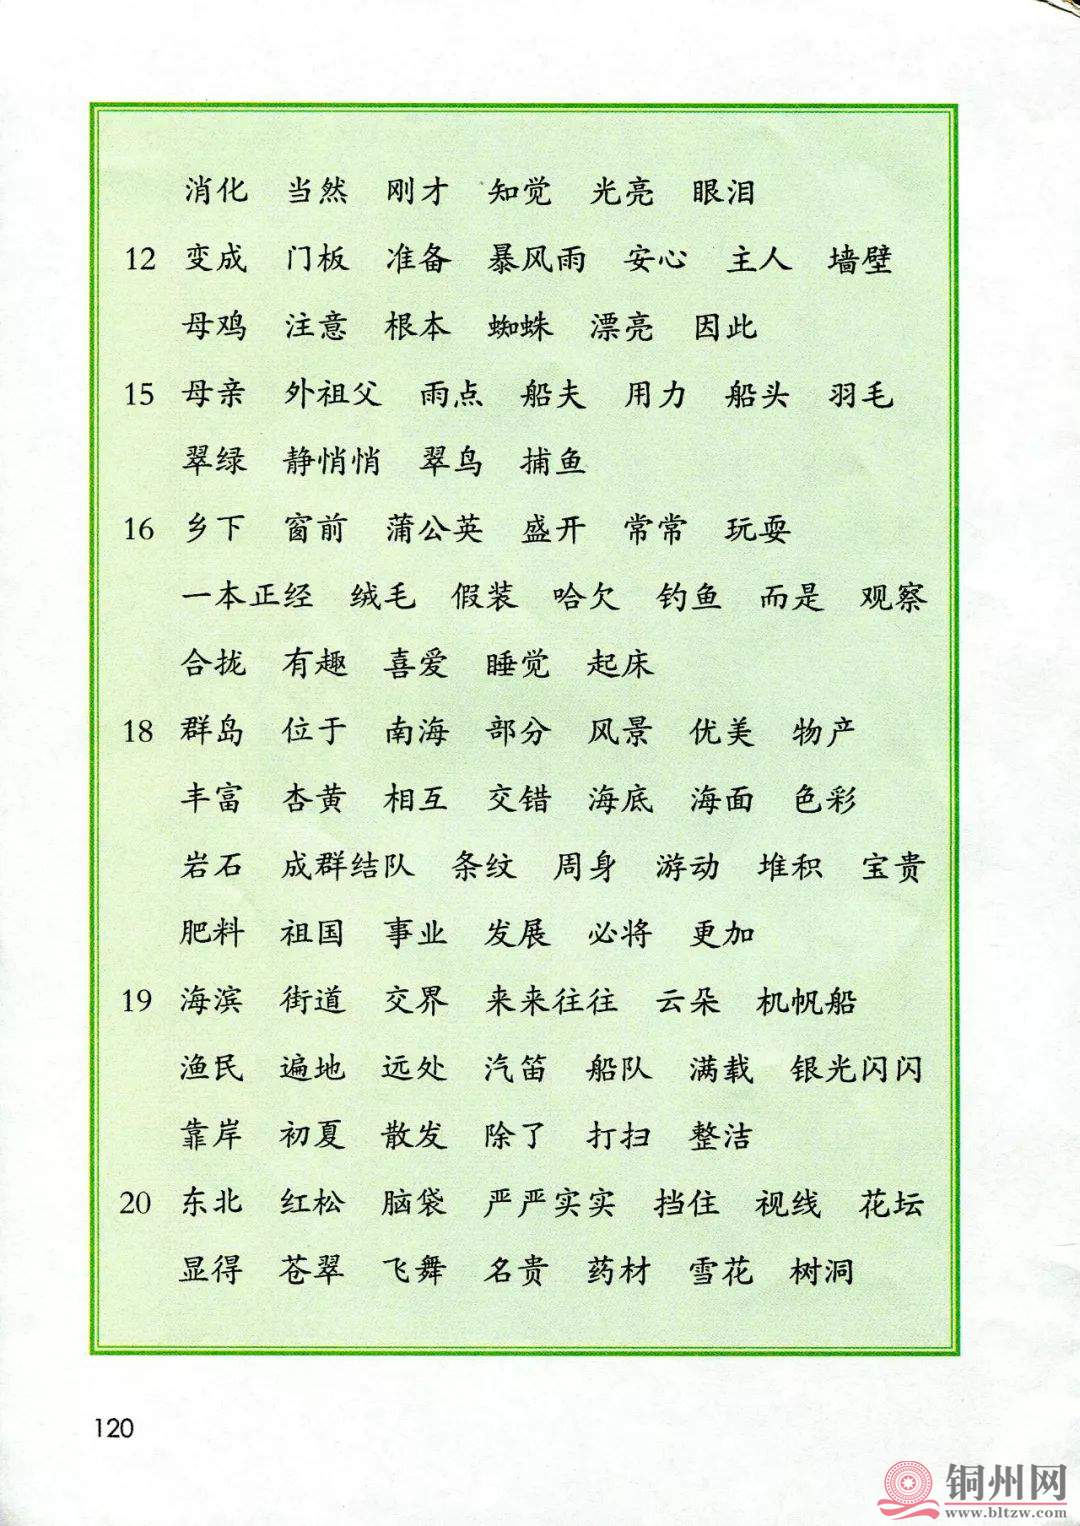 消化 当然 刚才 知觉 光亮 眼泪
12 变成 门板 准备 暴风雨 安心 主人 墙壁
母鸡 注意 根本 蜘蛛 漂亮 因此
15 母亲 外祖父 雨点 船夫 用力 船头 羽毛
翠绿 静悄悄 翠鸟 捕鱼
16 乡下 窗前 蒲公英 盛开 常常 玩耍
一本正经 绒毛 假装 哈欠 钓鱼 而是 观察
合拢 有趣 喜爱 睡觉 起床
18 群岛 位于 南海 部分 风景 优美 物产
丰富 杏黄 相互 交错 海底 海面 色彩
岩石 成群结队 条纹 周身 游动 堆积 宝贵
肥料 祖国 事业 发展 必将 更加
19 海滨 街道 交界 来来往往 云朵 机帆船
渔民 遍地 远处 汽笛 船队 满载 银光闪闪
靠岸 初夏 散发 除了 打扫 整洁
20 东北 红松 脑袋 严严实实 挡住 视线 花坛
显得 苍翠 飞舞 名贵 药材 雪花 树洞
120
铜州网
www.bltzw.com